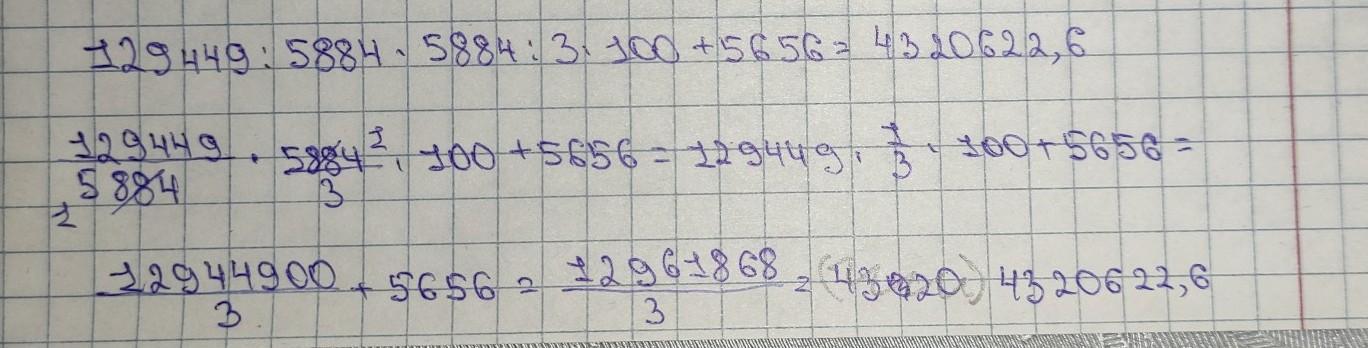 129449 : 5884 · 5884 : 3 · 100 + 5656 = 4320622,6
129449/5884 · 5884/3 · 100 + 5656 = 129449 · 1/3 · 100 + 5656 =
12944900/3 + 5656 = 12961868/3 = (43020) 4320622,6